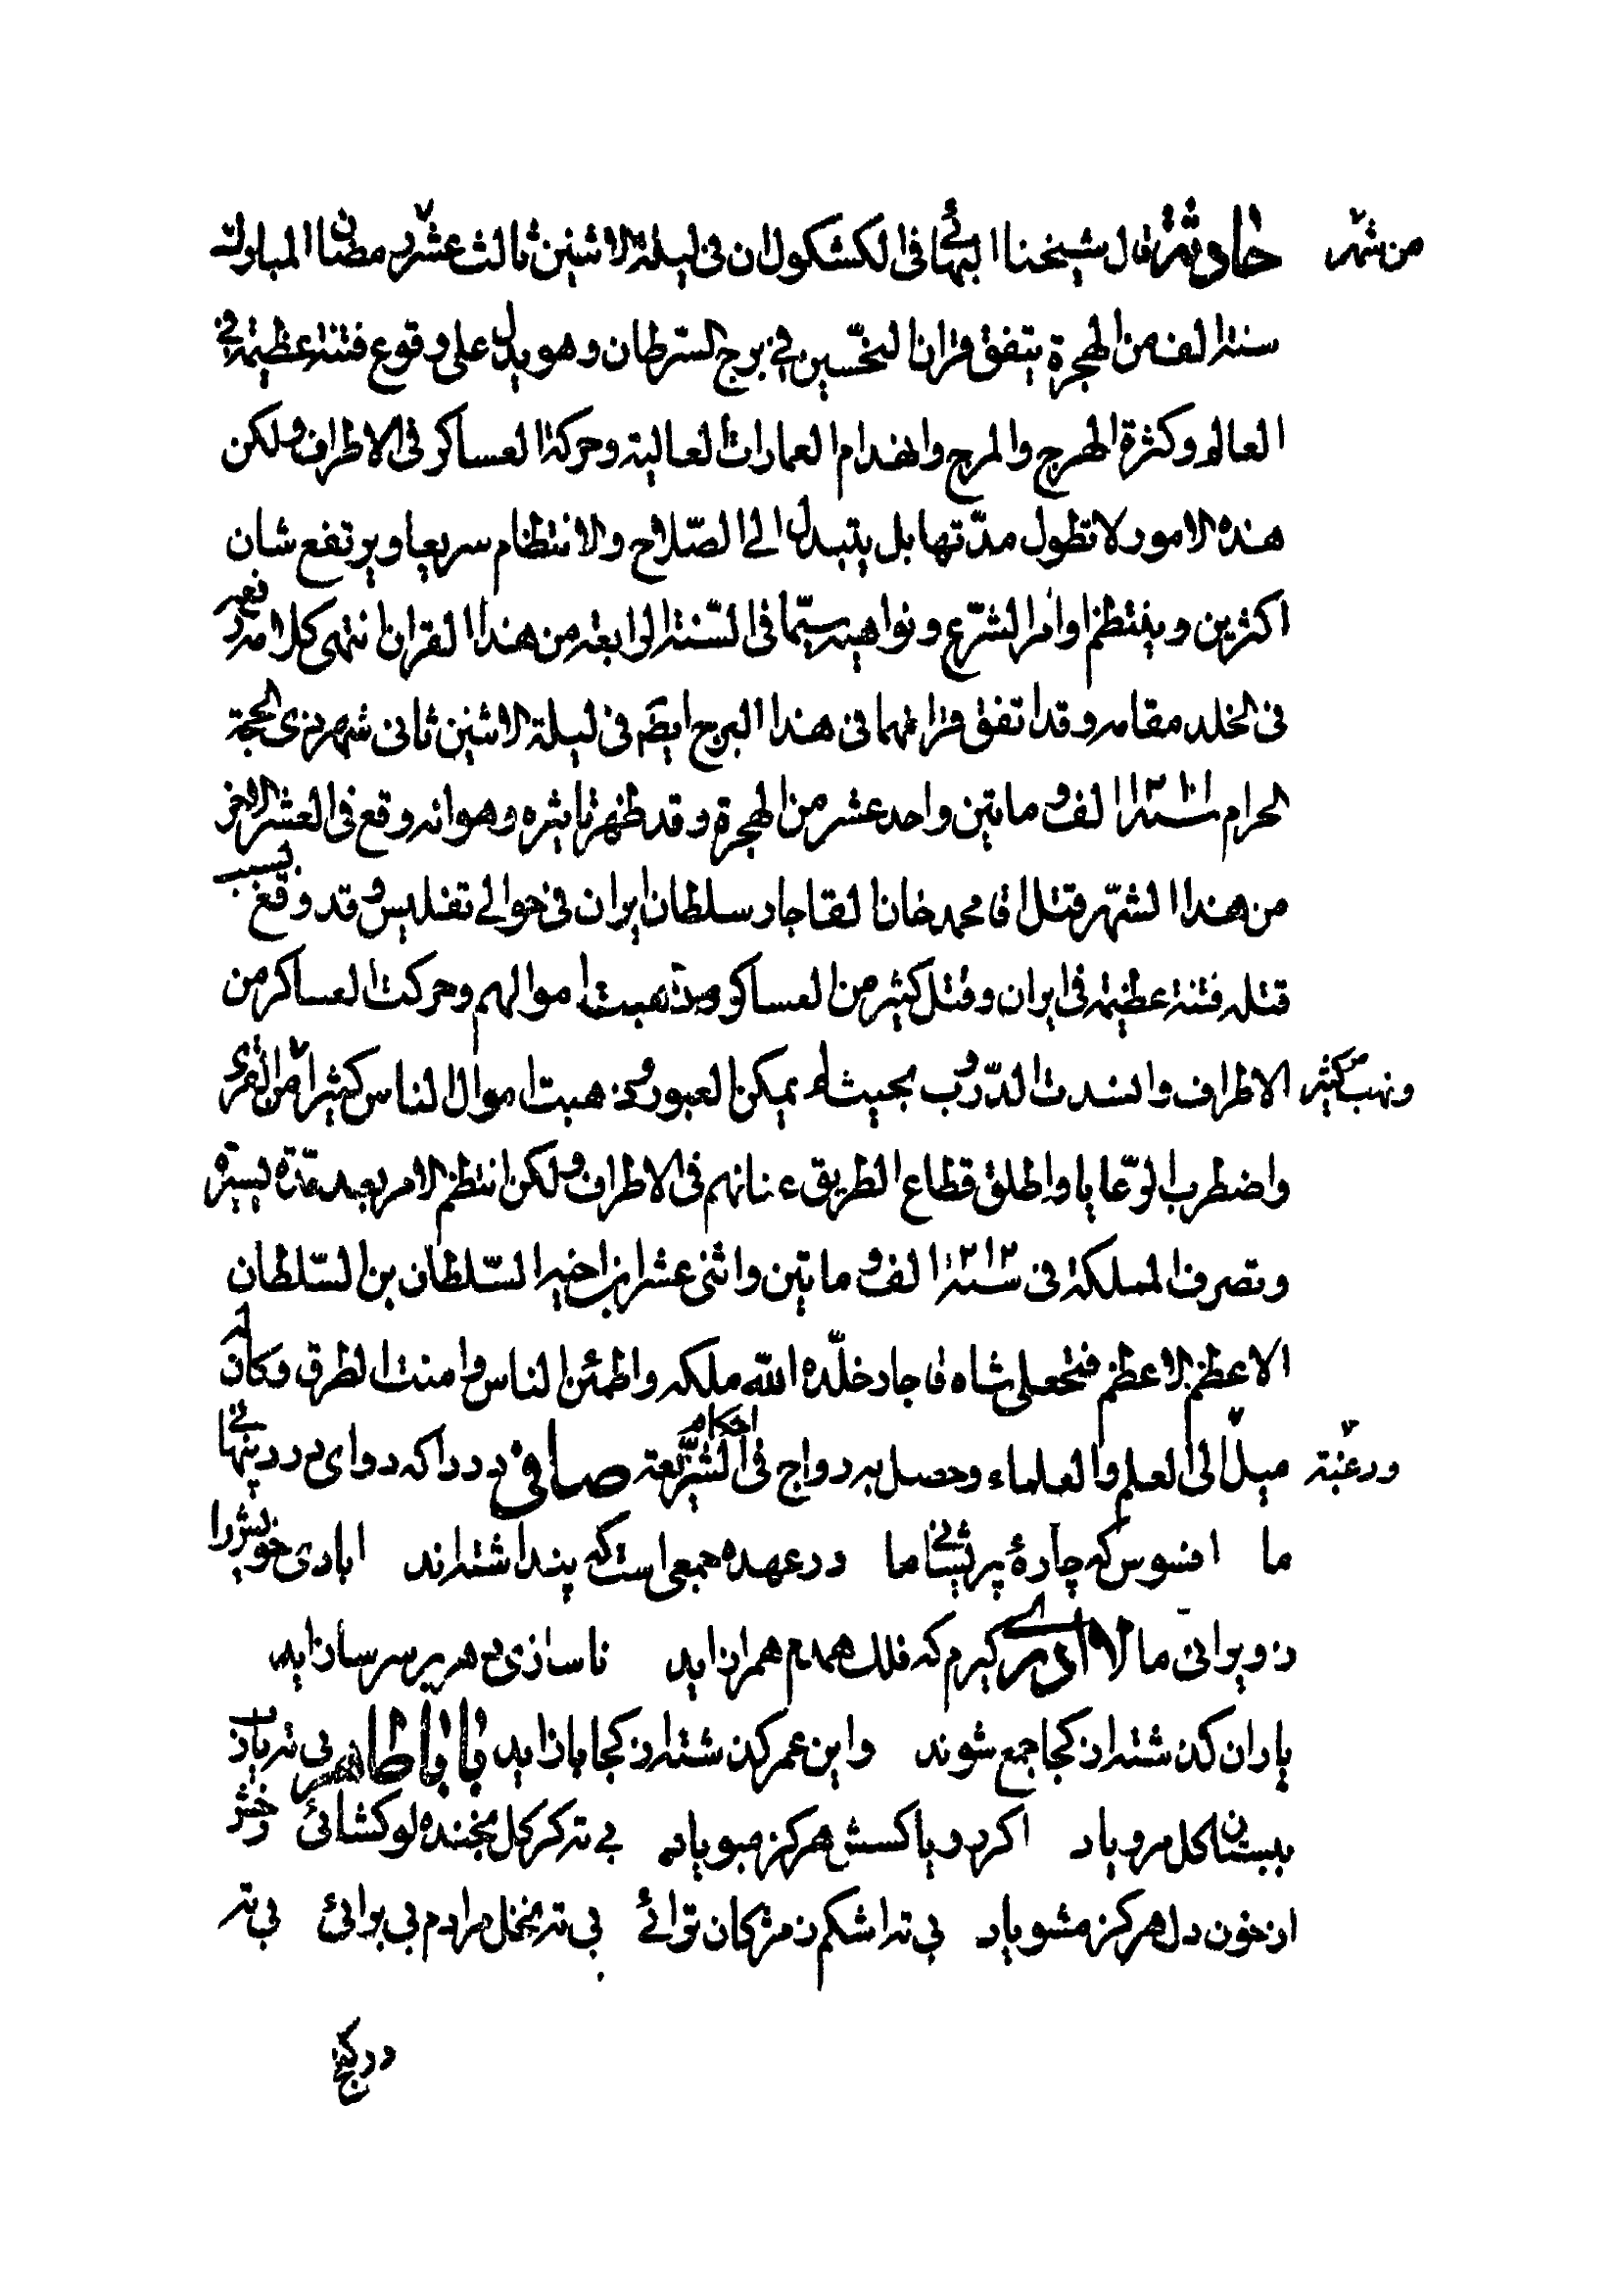 حادثة قال شيخنا البهائي في الكشكول ان في ليلة الاثنين ثالث عشر رمضان المبارك
من شهر
سنة الف من الهجرة يتفق قران النحسين في برج السرطان وهو يدل على وقوع فتنة عظيمة في
العالم وكثرة الهرج والمرج وانهدام العمارات العالية وحركة العساكر في الاطراف ولكن
هذه الامور لا تطول مدّتها بل يتبدل الى الصّلاح والانتظام سريعا ويرتفع شان
اكثرين وينتظم اوامر الشرع ونواهيه سيّما في السّنة الرابعة من هذا القران انتهى كلامه رفع
في الخلد مقامه وقد اتفق قرانهما في هذا البرج ايضا في ليلة الاثنين ثاني شهر ذي الحجة
الحرام سنة ١٢١١ الف و ماتين واحد عشر من الهجرة وقد ظهر تاثيره وهو انه وقع في العشر الاخر
من هذا الشهر قتل اقا محمد خان القاجار سلطان ايران في حوالي تفليس وقد وقع بسبب
قتله فتنة عظيمة في ايران وقتل كثير من العساكر وذهبت اموالهم وحركت العساكر من
الاطراف وانسدت الدّروب بحيث لم يمكن العبور وذهبت اموال الناس كثيرا من القرى
ونهب كثير من
واضطرب الرّعايا واطلق قطاع الطريق عنانهم في الاطراف ولكن انتظم الامر بعد مدّة يسيرة
وتصرف المملكة في سنة ١٢١٢ الف و ماتين واثنى عشر ابن اخيه السّلطان بن السّلطان
الاعظم الاعظم فتحعلى شاه قاجار خلّده الله ملكه واطمئن الناس وامنت الطرق وكان له
ميل الى العلم والعلماء وحصل به رواج في احكام الشّريعة صافي دردا كه دواى درد پنهانى
ورغبة
ما افسوس كه چارهٔ پريشانى ما در عهده جمعى است كه پنداشته‌اند ابادى خويش را
ز ويرانى ما لا ادرى كيرم كه فلك همدم همراز ايد ناسازى دهر بر سر ساز ايد
ياران كذشته از كجا جمع شوند واين عمر كذشته از كجا باز ايد بابا طاهر بى ته يارب
ببستان كل مرويا د اكر رويا كسش هركز مبويا د بى ته كر كل بخنده لو كشائى رخش
از خون دل هركز مشويا د بى ته اشكم ز مژكان ترائى بى ته نخل مرادم بى برائى بى ته
در كنج